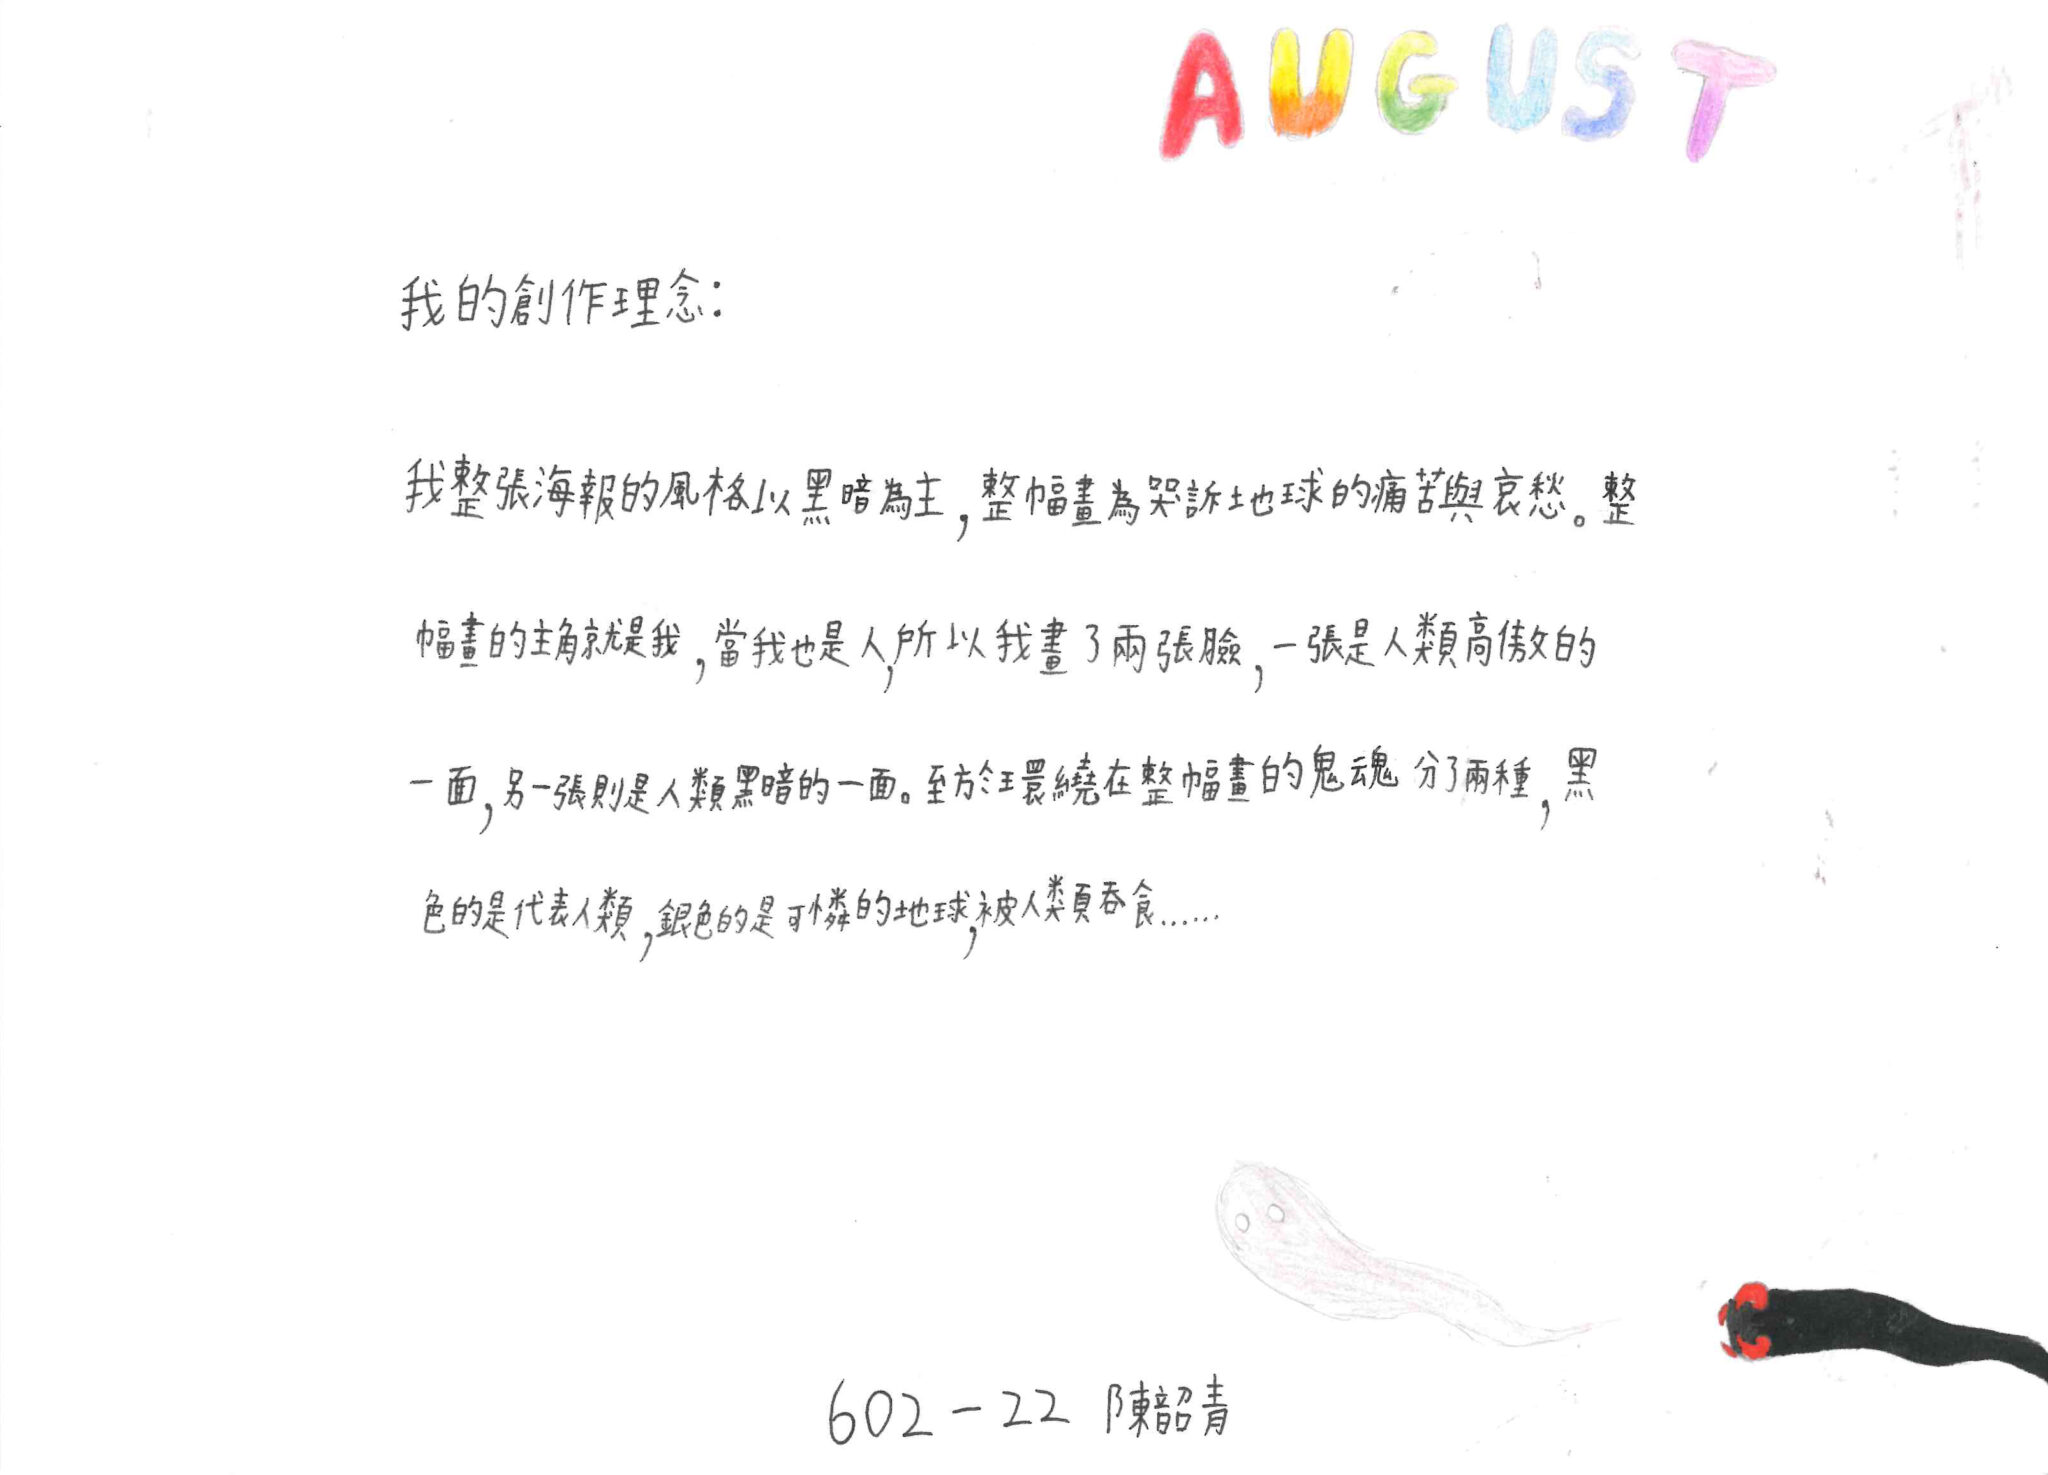 AUGUST
我的創作理念:
我整張海報的風格以黑暗為主,整幅畫為哭訴地球的痛苦與哀愁。整
幅畫的主角就是我,當我也是人,所以我畫了兩張臉,一張是人類高傲的
一面,另一張則是人類黑暗的一面。至於環繞在整幅畫的鬼魂分了兩種,黑
色的是代表人類,銀色的是可憐的地球,被人類吞食……
602-22 陳韶青